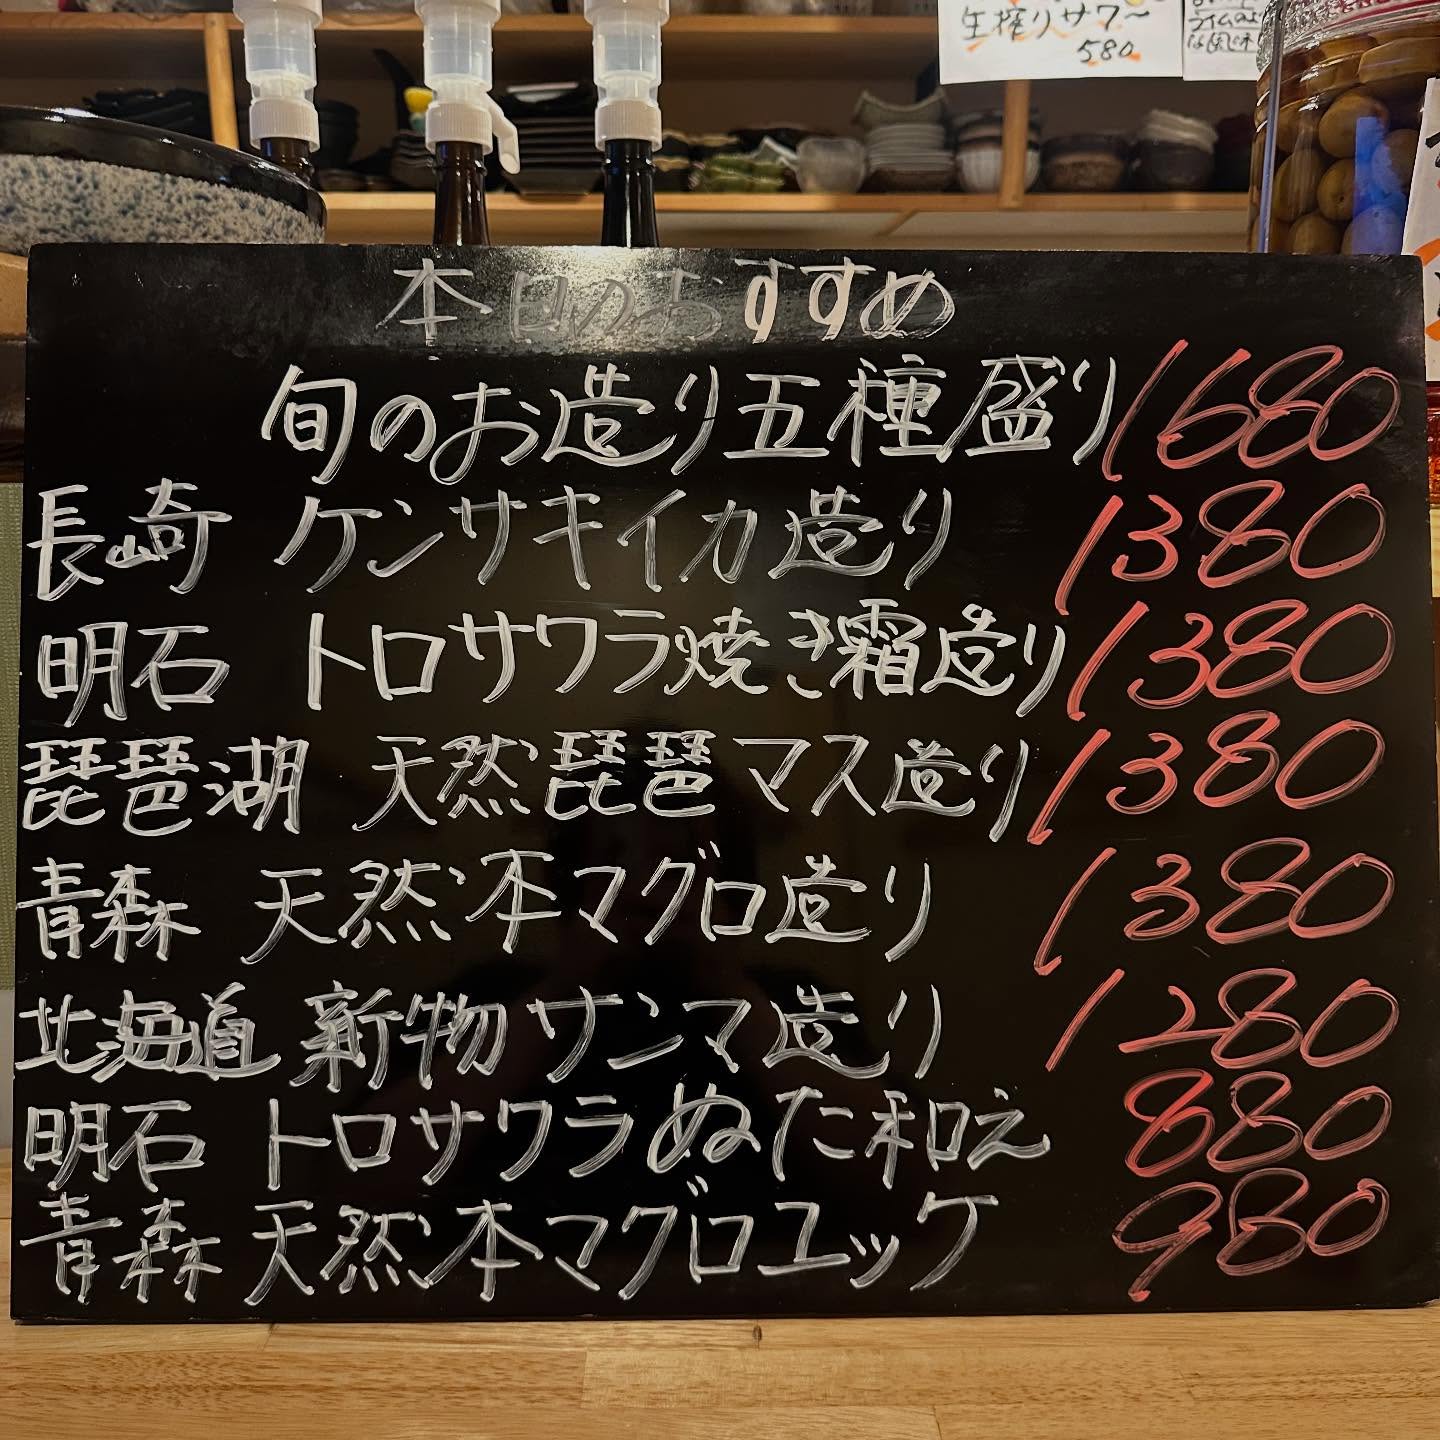 生搾りサワー
580
本日のおすすめ
旬のお造り五種盛り 1680
長崎 ケンサキイカ造り 1380
明石 トロサワラ焼き霜造り 1380
琵琶湖 天然琵琶マス造り 1380
青森 天然本マグロ造り 1380
北海道 新物サンマ造り 1280
明石 トロサワラぬた和え 880
青森 天然本マグロユッケ 980